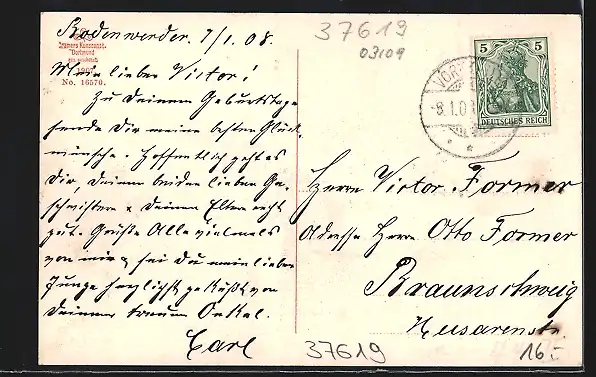 Bodenwerder. 7/1. 08.
37619
03109
Cramers Kunstanst.
Dortmund
No. 16570.
Mein lieber Victor!
Zu Deinem Geburtstage
sende Dir meine besten Glück-
wünsche. Hoffentlich geht es
Dir, Deinen beiden lieben Ge-
schwistern & Deinen Eltern recht
gut. Grüße Alle vielmals
von mir & sei Du mein lieber
Junge herzlichst geküßt von
Deinem treuen Onkel.
Carl
5 5
DEUTSCHES REICH
8.1.0
Herrn Victor Former
Adresse Herrn Otto Former
Braunschweig
Husarenstr.
37619
16.-